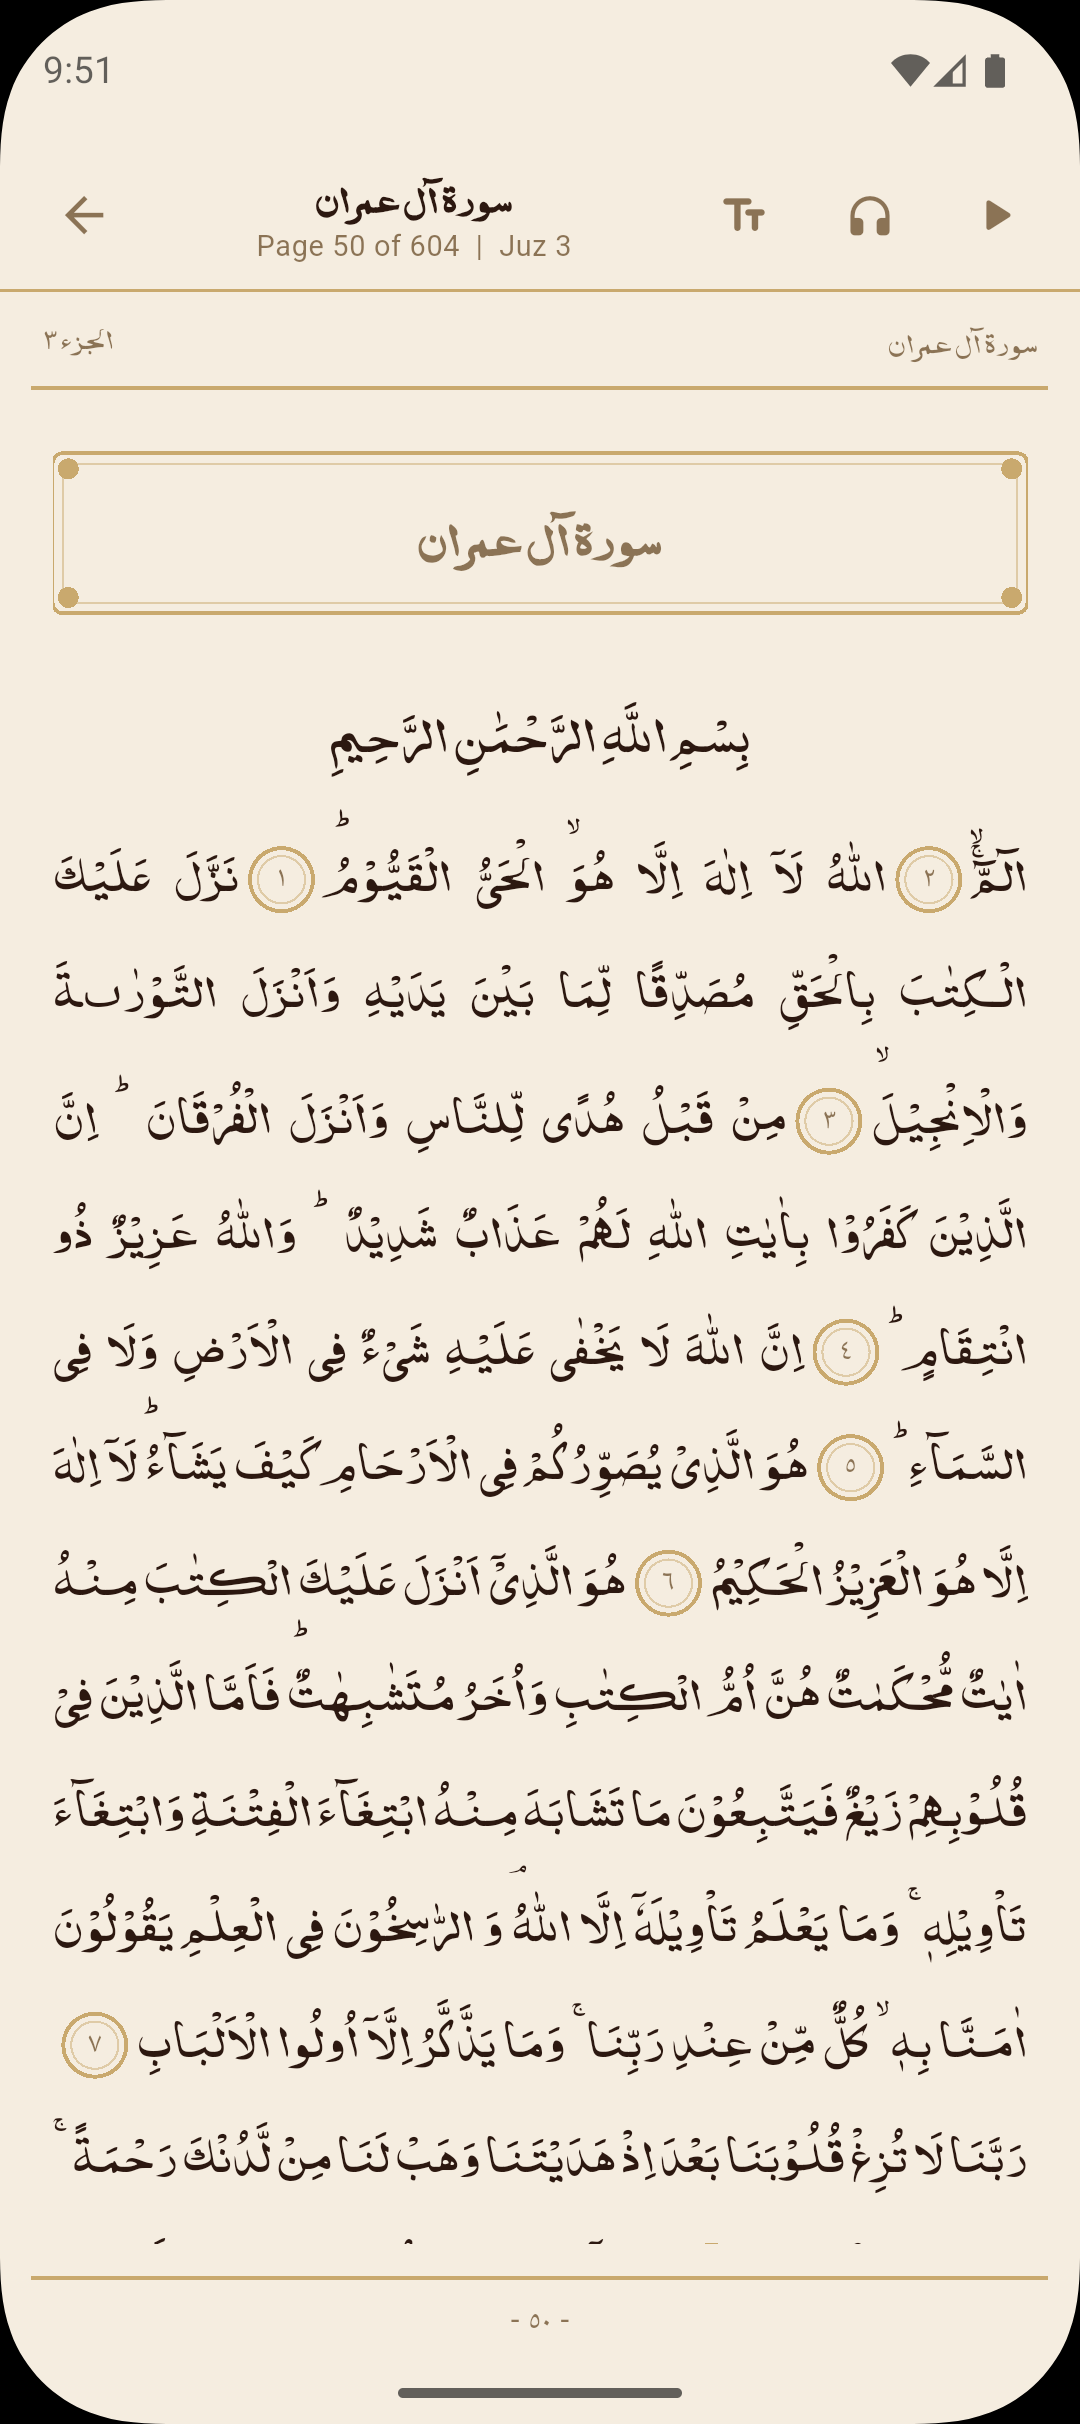 9:51
سورة آل عمران
Page 50 of 604 | Juz 3
سورة آل عمران
الجزء ٣
سورة آل عمران
بِسْمِ اللَّهِ الرَّحْمَٰنِ الرَّحِيمِ
الٓمّٓۚۙ ٢ اللّٰهُ لَاۤ اِلٰهَ اِلَّا هُوَۙ الْحَىُّ الْقَيُّوْمُؕ ١ نَزَّلَ عَلَيْكَ
الْكِتٰبَ بِالْحَقِّ مُصَدِّقًا لِّمَا بَيْنَ يَدَيْهِ وَاَنْزَلَ التَّوْرٰٮةَ
وَالْاِنْجِيْلَۙ ٣ مِنْ قَبْلُ هُدًى لِّلنَّاسِ وَاَنْزَلَ الْفُرْقَانَ ؕ اِنَّ
الَّذِيْنَ كَفَرُوْا بِاٰيٰتِ اللّٰهِ لَهُمْ عَذَابٌ شَدِيْدٌ ؕ وَاللّٰهُ عَزِيْزٌ ذُو
انْتِقَامٍ ؕ ٤ اِنَّ اللّٰهَ لَا يَخْفٰى عَلَيْهِ شَىْءٌ فِى الْاَرْضِ وَلَا فِى
السَّمَآءِ ؕ ٥ هُوَ الَّذِىْ يُصَوِّرُكُمْ فِى الْاَرْحَامِ كَيْفَ يَشَآءُؕ لَاۤ اِلٰهَ
اِلَّا هُوَ الْعَزِيْزُ الْحَكِيْمُ ٦ هُوَ الَّذِىْۤ اَنْزَلَ عَلَيْكَ الْكِتٰبَ مِنْهُ
اٰيٰتٌ مُّحْكَمٰتٌ هُنَّ اُمُّ الْكِتٰبِ وَاُخَرُ مُتَشٰبِهٰتٌؕ فَاَمَّا الَّذِيْنَ فِىْ
قُلُوْبِهِمْ زَيْغٌ فَيَتَّبِعُوْنَ مَا تَشَابَهَ مِنْهُ ابْتِغَآءَ الْفِتْنَةِ وَابْتِغَآءَ
تَاْوِيْلِهٖۚ وَمَا يَعْلَمُ تَاْوِيْلَهٗۤ اِلَّا اللّٰهُۘ وَ الرّٰسِخُوْنَ فِى الْعِلْمِ يَقُوْلُوْنَ
اٰمَنَّا بِهٖۙ كُلٌّ مِّنْ عِنْدِ رَبِّنَاۚ وَمَا يَذَّكَّرُ اِلَّاۤ اُولُوا الْاَلْبَابِ ٧
رَبَّنَا لَا تُزِغْ قُلُوْبَنَا بَعْدَ اِذْ هَدَيْتَنَا وَهَبْ لَنَا مِنْ لَّدُنْكَ رَحْمَةً ۚ
- ٥٠ -